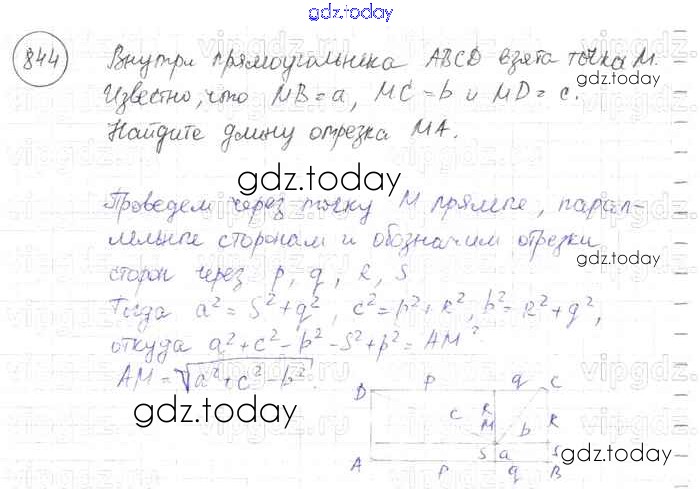 gdz.today
844
Внутри прямоугольника ABCD взята точка M.
Известно, что MB = a, MC = b и MD = c.
Найдите длину отрезка MA.
gdz.today
gdz.today
Проведем через точку M прямые, парал-
лельные сторонам и обозначим отрезки
сторон через p, q, R, S
Тогда a² = S² + q², c² = p² + R², b² = R² + q²,
откуда a² + c² - b² - S² + p² = AM²
AM = √a² + c² - b².
gdz.today
gdz.today
gdz.today
D p q C
c R M b R
S a S
A p q B